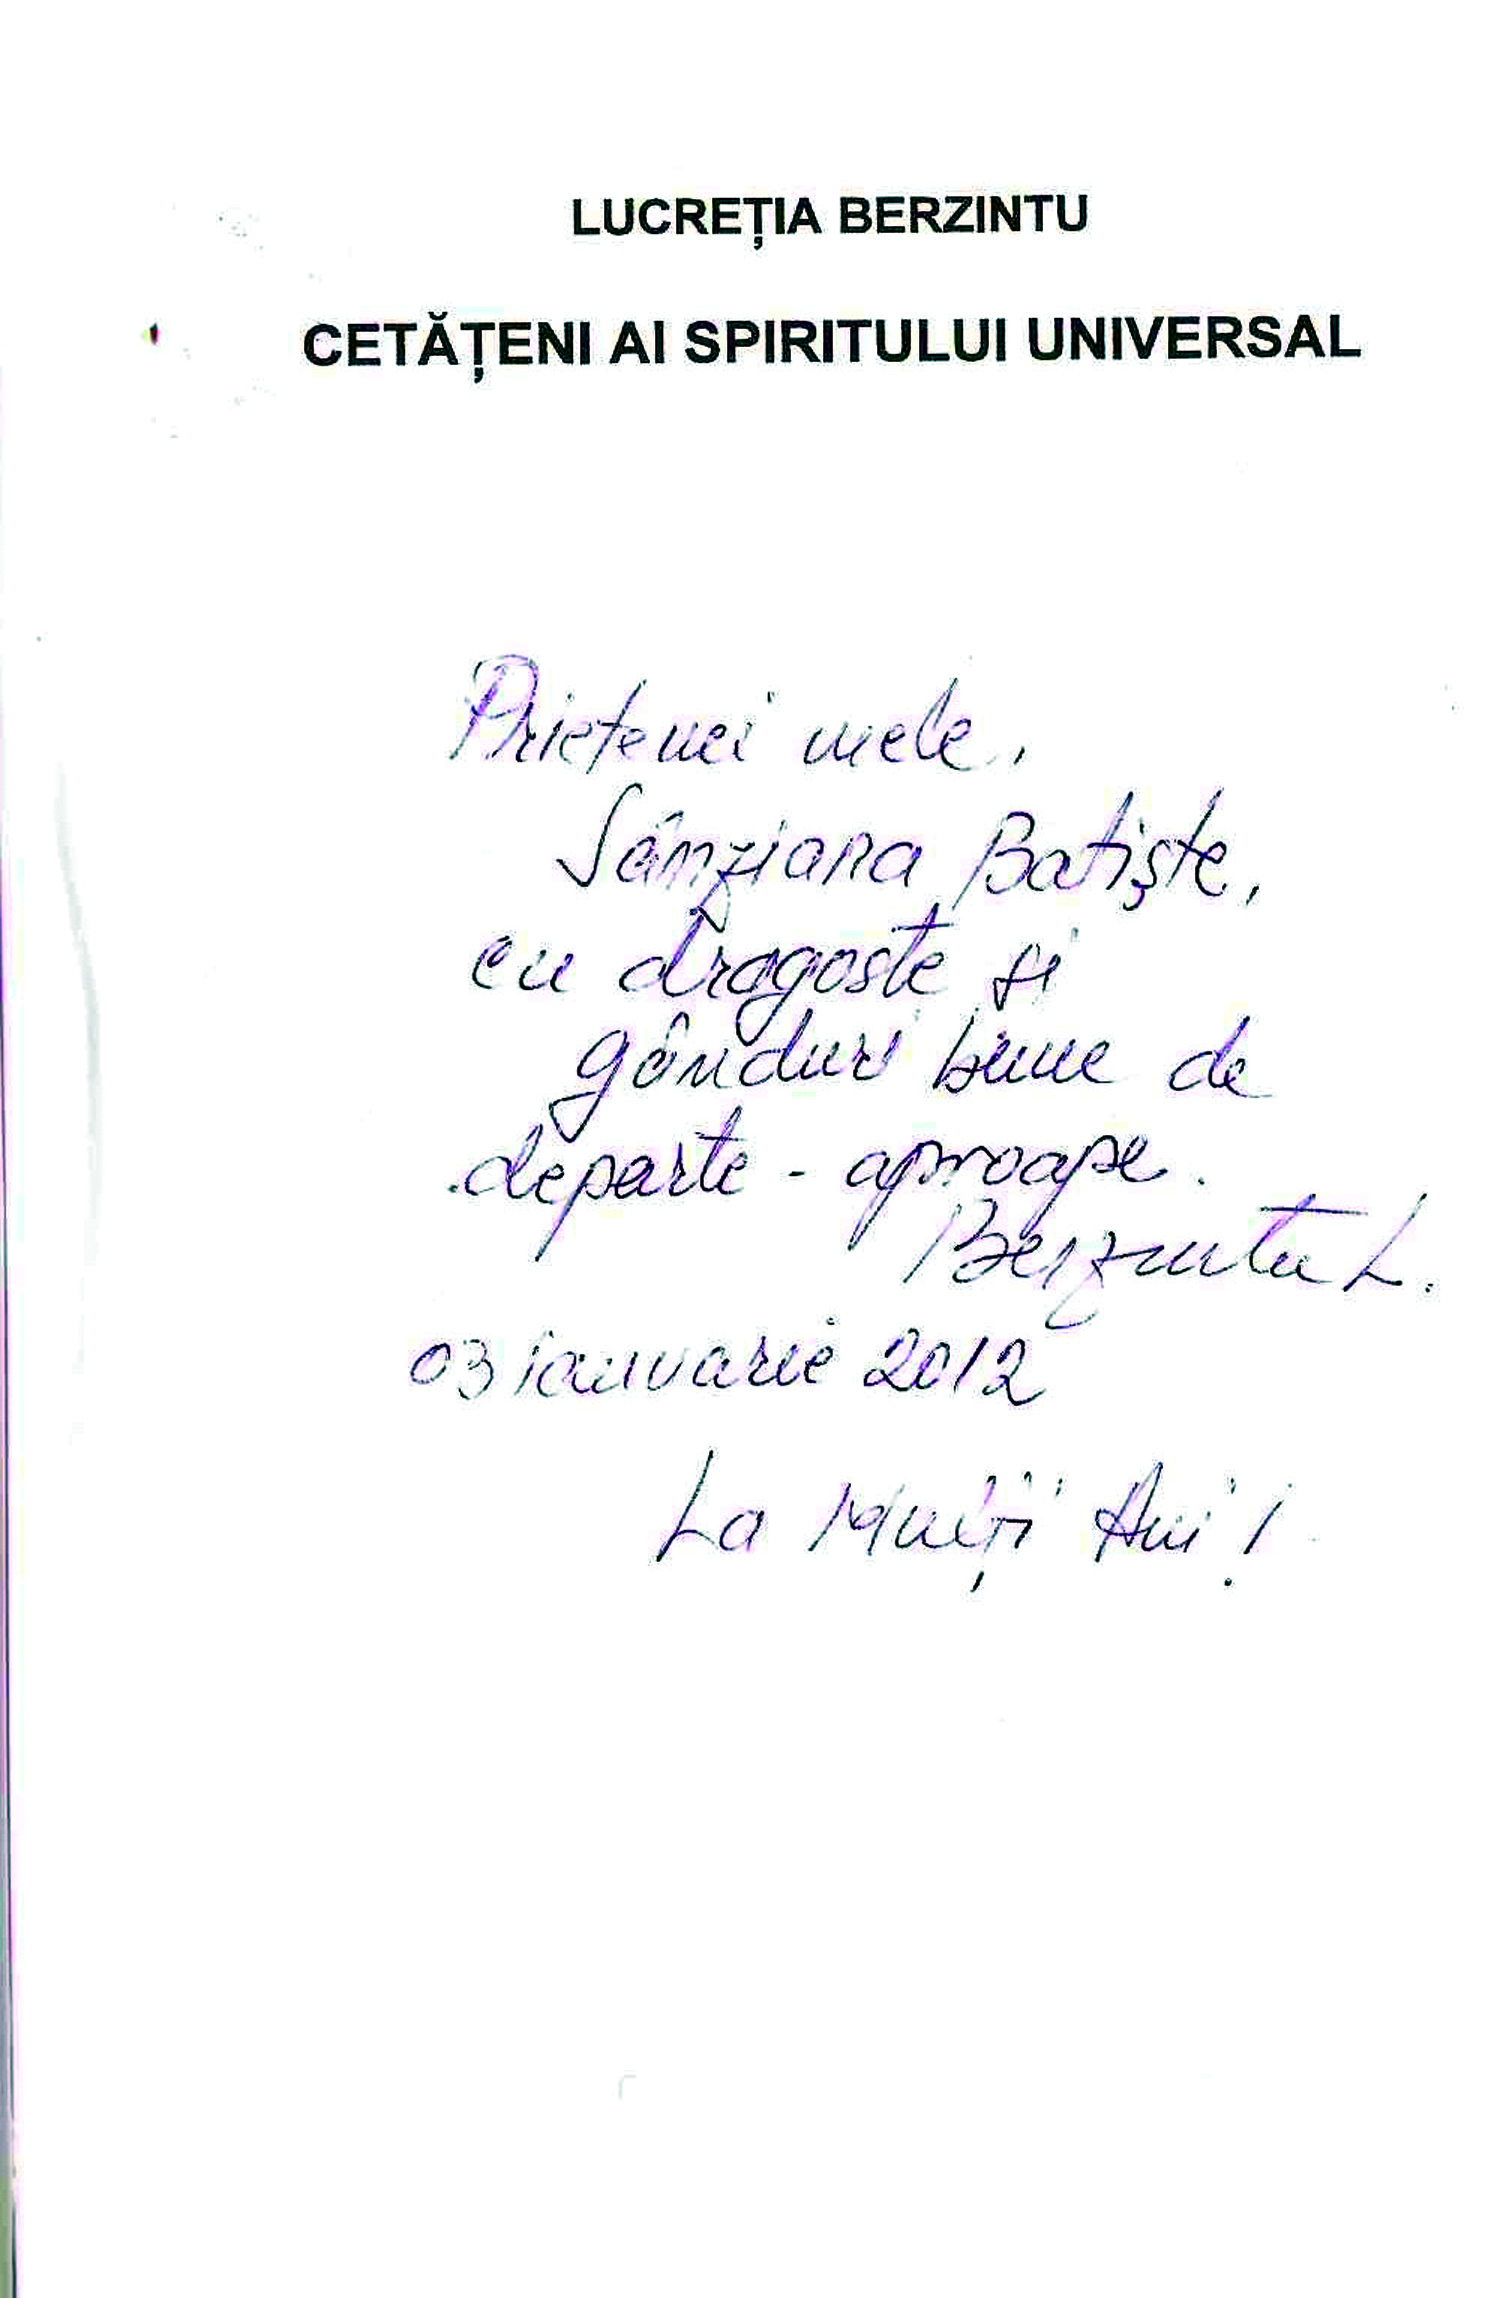 LUCREȚIA BERZINTU
CETĂȚENI AI SPIRITULUI UNIVERSAL
Prietenei mele,
Sânziana Batiște,
cu dragoste și
gânduri bune de
departe - aproape.
Berzintu L.
03 ianuarie 2012
La Mulți Ani!